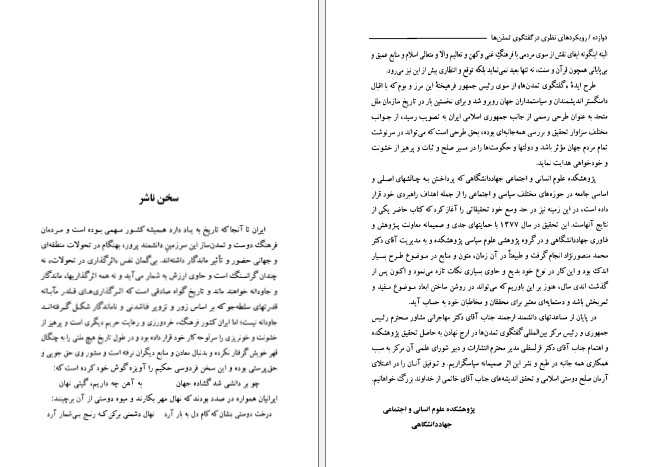 دوازده / رویکردهای نظری در گفتگوی تمدن‌ها
البته اینگونه ایفای نقش از سوی مردمی با فرهنگِ غنی و کهن و تعالیم والا و متعالی اسلام و منابع عمیق و
بی‌پایانی همچون قرآن و سنت، نه تنها بعید نمی‌نماید بلکه توقع و انتظاری بیش از این نیز می‌رود.
طرح ایدهٔ «گفتگوی تمدن‌ها» از سوی رئیس جمهور فرهیختهٔ این مرز و بوم که با اقبال
دامنگستر اندیشمندان و سیاستمداران جهان روبرو شد و برای نخستین بار در تاریخ سازمان ملل
متحد به عنوان طرحی رسمی از جانب جمهوری اسلامی ایران به تصویب رسید، از جوانب
مختلف سزاوار تحقیق و بررسی همه‌جانبه‌ای بوده، بحق طرحی است که می‌تواند در سرنوشت
تمام مردم جهان مؤثر باشد و دولتها و حکومت‌ها را در مسیر صلح و ثبات و پرهیز از خشونت
و خودخواهی هدایت نماید.
پژوهشکده علوم انسانی و اجتماعی جهاددانشگاهی که پرداختن به چالشهای اصلی و
اساسی جامعه در حوزه‌های مختلف سیاسی و اجتماعی را از جمله اهداف راهبردی خود قرار
داده است، در این زمینه نیز در حد وسع خود تحقیقاتی را آغاز کرد که کتاب حاضر یکی از
نتایج آنهاست. این تحقیق در سال ۱۳۷۷ با حمایتهای جدی و صمیمانه معاونت پژوهش و
فناوری جهاددانشگاهی و در گروه پژوهشی علوم سیاسی پژوهشکده و به مدیریت آقای دکتر
محمد منصورنژاد انجام گرفت و طبیعتاً در آن زمان، متون و منابع در موضوع طرح بسیار
اندک بود و این کار در نوع خود بدیع و حاوی بسیاری نکات تازه می‌نمود و اکنون پس از
گذشت اندی سال، هنوز بر این باوریم که می‌تواند در روشن ساختن ابعاد موضوع مفید و
ثمربخش باشد و دستمایه‌ای معتبر برای محققان و مخاطبان خود به حساب آید.
در پایان از مساعدتهای دانشمند ارجمند جناب آقای دکتر مهاجرانی مشاور محترم رئیس
جمهوری و رئیس مرکز بین‌المللی گفتگوی تمدن‌ها در ارج نهادن به حاصل تحقیق پژوهشکده
و اهتمام جناب آقای دکتر قزلسفلی مدیر محترم انتشارات و دبیر شورای علمی آن مرکز به سبب
همکاری همه جانبه در طبع و نشر این اثر صمیمانه سپاسگزاریم. و توفیق آنان را در اعتلای
آرمان صلح دوستی اسلامی و تحقق اندیشه‌های جناب آقای خاتمی از خداوند بزرگ خواهانیم.
پژوهشکده علوم انسانی و اجتماعی
جهاددانشگاهی
سخن ناشر
ایران تا آنجا که تاریخ به یاد دارد همیشه کشور مهمی بوده است و مردمان
فرهنگ دوست و تمدن‌ساز این سرزمینِ دانشمند پرور، بهنگام در تحولات منطقه‌ای
و جهانی حضور و تأثیر ماندگار داشته‌اند. بی‌گمان نفس تأثرگذاری در تحولات، نه
چندان گرانسنگ است و حاوی ارزش به شمار می‌آید و نه همه اثرگذاریها، ماندگار
و جاودانه خواهند ماند و تاریخ گواه صادقی است که اثرگذاری‌های قلدر مآبانه
قدرتهای سلطه‌جو که بر اساس زور و تزویر فاشدنی و ناماندگار شکل گرفته‌اند
جاودانه نیست؛ اما ایران کشور فرهنگ، خردورزی و رعایت حریم دیگری است و پرهیز از
خشونت و خونریزی را سرلوحه کار خود قرار داده بود و در طول تاریخ هیچ ملتی را به چنگال
قهر خویش گرفتار نکرده و بدنبال معادن و منابع دیگران نرفته است و منشور وی حق جویی و
حق‌پرستی بوده و این سخن فردوسی حکیم را آویزه گوش خود کرده است که:
چو بر دانشی شد گشاده جهان به آهن چه داریم، گیتی نهان
ایرانیان همواره در صدد بودند که نهال مهر بکارند و میوه دوستی از آن برچینند:
درخت دوستی بنشان که کام دل به بار آرد نهال دشمنی برکن که رنج بی‌شمار آرد